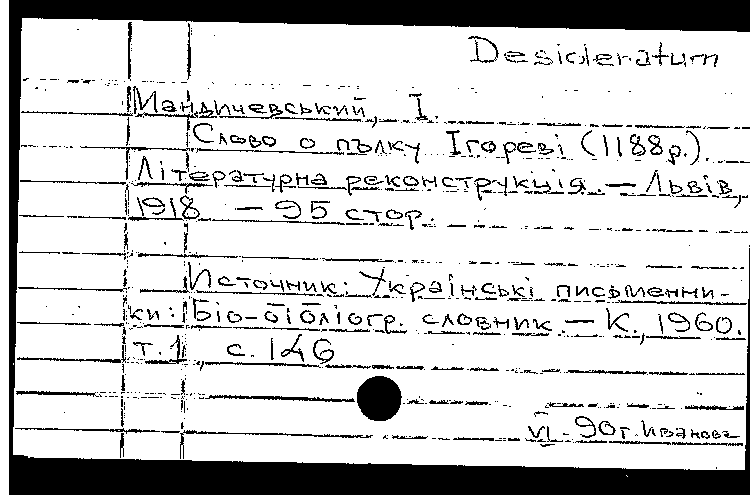 Desideratum
Мандичевський, І.
Слово о пълку Ігореві (1188р.).
Літературна реконструкція. — Львів,
1918 — 95 стор.
Источник: Українські письменни-
ки: Біо-бібліогр. словник. — К., 1960.
т. 1, с. 146
VI - 90г. Иванова